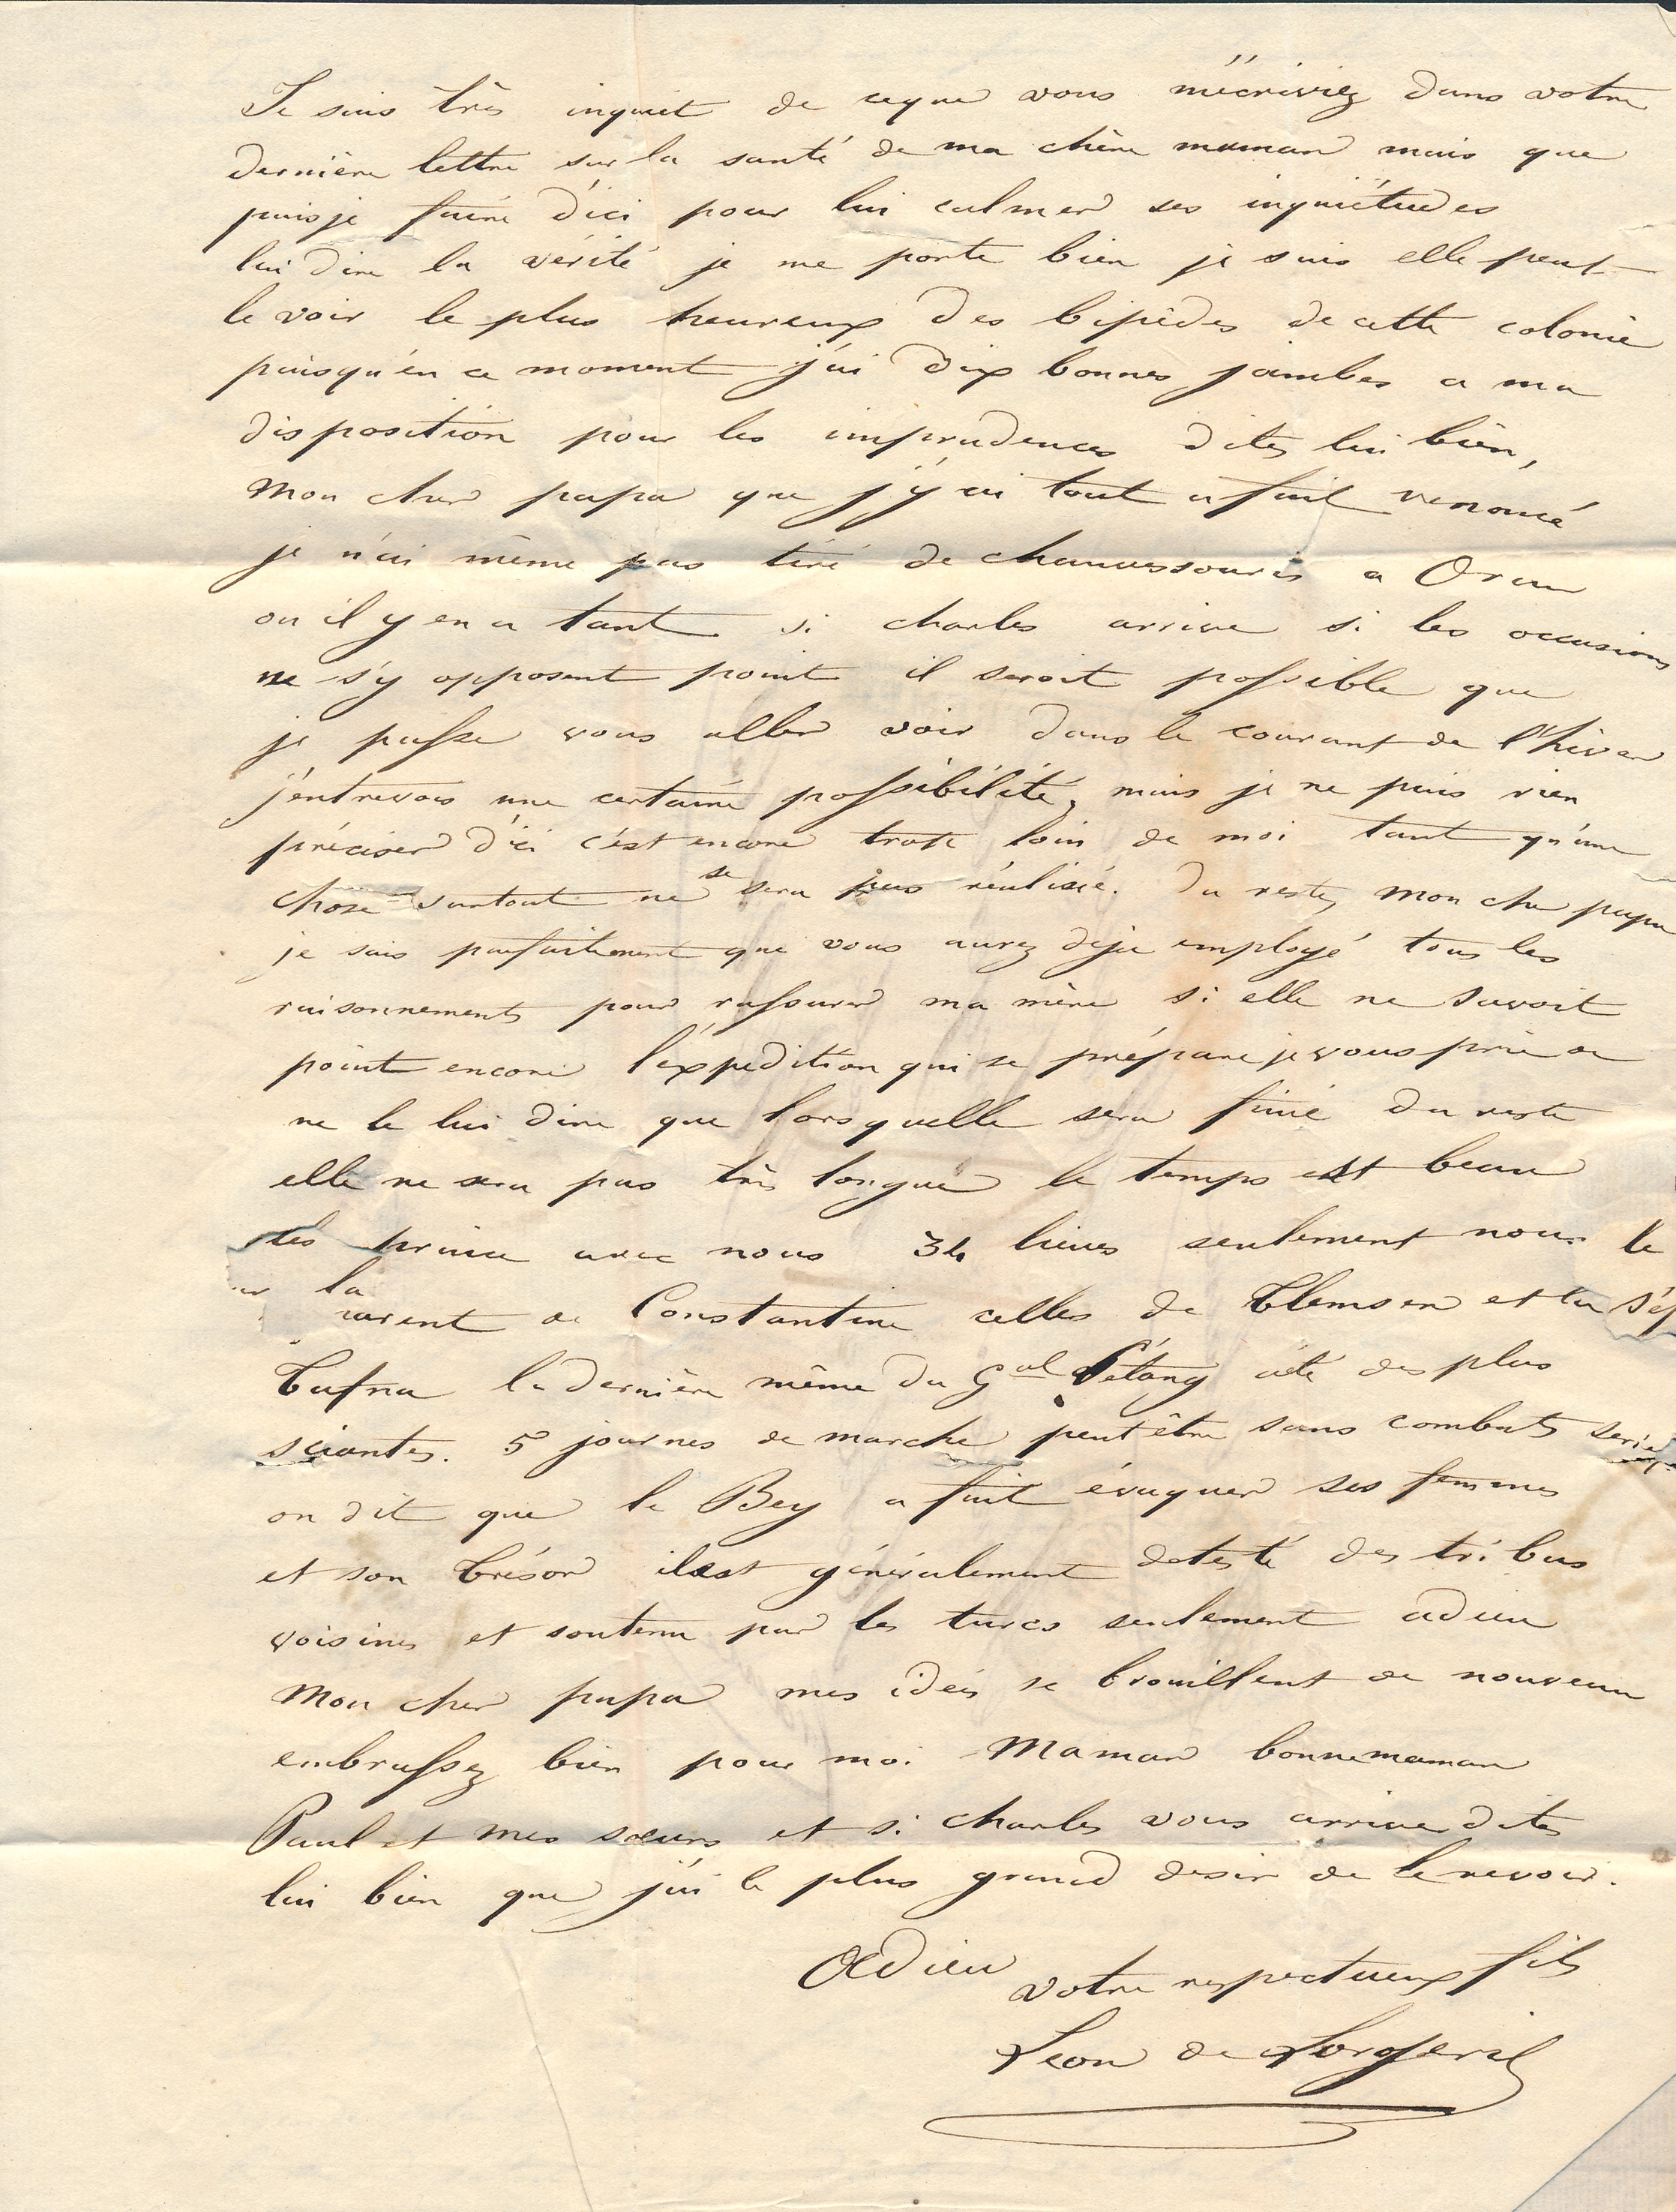 Je suis très inquiet de ceque vous m'écriviez dans votre
dernière lettre sur la santé de ma chère maman mais que
puisje faire d'ici pour lui calmer ses inquiétudes
lui dire la vérité je me porte bien je suis elle peut
le voir le plus heureux des bipèdes de cette colonie
puisqu'en ce moment j'ai dix bonnes jambes a ma
disposition pour les imprudences dites lui bien,
mon cher papa que j'y ai tout afait renoncé
je n'ai même pas tiré de chauvessouris a Oran
ou il y en a tant si charles arrive si les occasions
ne s'y opposent point il seroit possible que
je puisse vous aller voir dans le courant de l'hiver
j'entrevois une certaine possibilité, mais je ne puis rien
préciser d'ici c'est encore trop loin de moi tant qu'une
chose surtout ne se sera pas réalisée. Du reste, mon cher papa
je sais parfaitement que vous aurez deja employé tous les
raisonnements pour rassurer ma mère si elle ne savoit
point encore l'expedition qui se prépare je vous prie de
ne le lui dire que lorsquelle sera finie du reste
elle ne sera pas très longue le temps est beau
les prince avec nous 34 lieues seulement nous le
la
de Constantine celles de Tlemsen et la
Tafna la dernière même du Gal Létang a été des plus
sciantes. 5 journes de marche peut être sans combats
on dit que le Bey a fait évaquer ses femmes
et son trésor ilest généralement detesté des tribus
voisines et soutenu par les turcs seulement adieu
mon cher papa mes idées se brouillent de nouveau
embrassez bien pour moi Maman bonnemaman
Paul et mes sœurs et si charles vous arrive dites
lui bien que j'ai le plus grand desir de le revoir.
Adieu
votre respectueux fils
Leon de Lorgeril